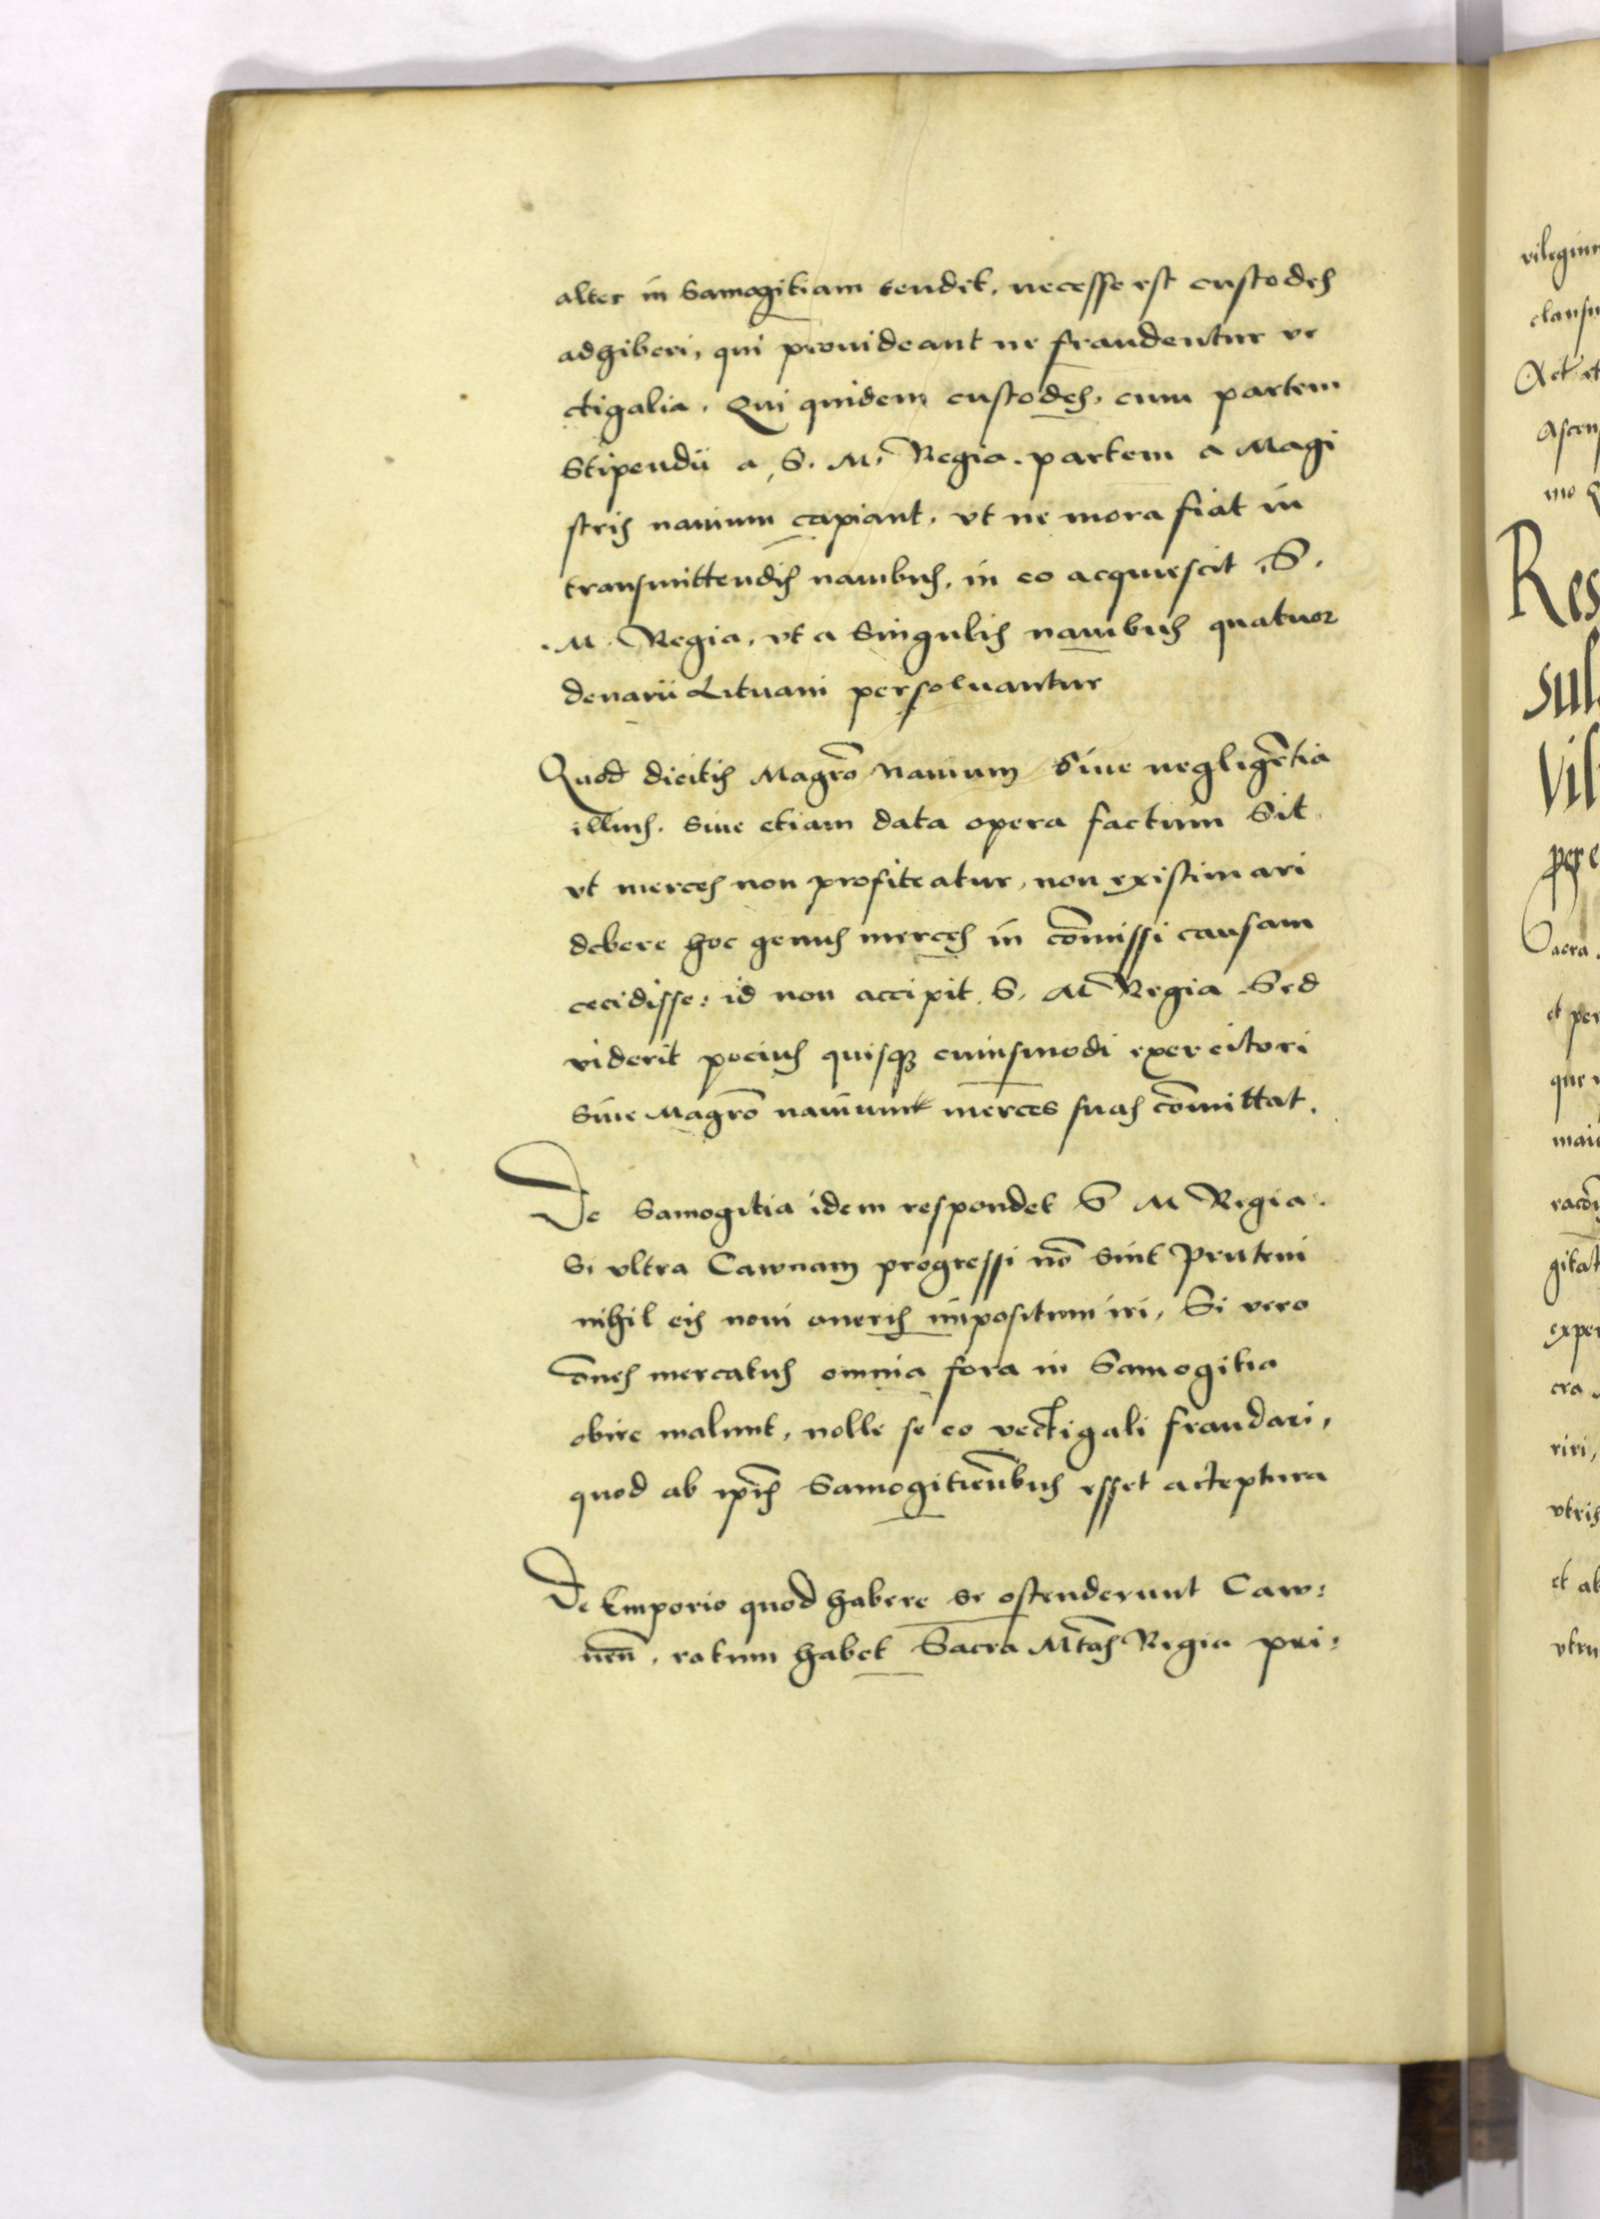 alter in Samogitiam tendit, necesse est custodes
adhiberi, qui prouideant ne fraudentur ve
ctigalia. Qui quidem custodes, cum partem
Stipendii a S. M. Regia. partem a Magi
stris nauium capiant, vt ne mora fiat in
transmittendis nauibus, in eo acquiescit S.
M. Regia, vt a Singulis nauibus quatuor
denarii Lituani persoluantur
Quod dicitis Magrō nauium Siue negligētia
illius. siue etiam data opera factum Sit
vt merces non profiteatur, non existimari
debere hoc genus merces in cōmissi causam
cecidisse: id non accipit S. M Regia. Sed
viderit pocius quisqꝫ cuiusmodi exercitori
siue Magrō nauium merces suas cōmittat.
De Samogitia idem respondet S M Regia.
Si vltra Cawnam progressi nō sint Pruteni
nihil eis noui oneris impositum iri, Si vero
ōnes mercatus omnia fora in Samogitia
obire malunt, nolle se eo vectigali fraudari,
quod ab ip̄is Samogitien̄bus esset acceptura
De Emporio quod habere se ostenderunt Caw:
nen̄. ratum habet Sacra Mtas Regia pri:
vilegium
clausu
Act et
Ascen
mo
Res
sul
Vil
Sacra
et per
que
gitat
exper
cra
riri,
vtris
et ab
vtru